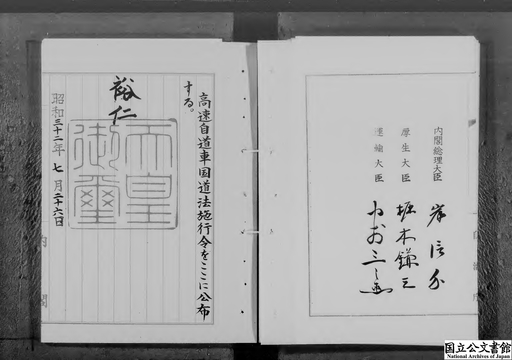 内閣総理大臣 岸信介
厚生大臣 堀木鎌三
運輸大臣
高速自動車国道法施行令をここに公布
する。
裕仁
天皇
御璽
昭和三十二年 七 月二十六日
内閣
国立公文書館
National Archives of Japan